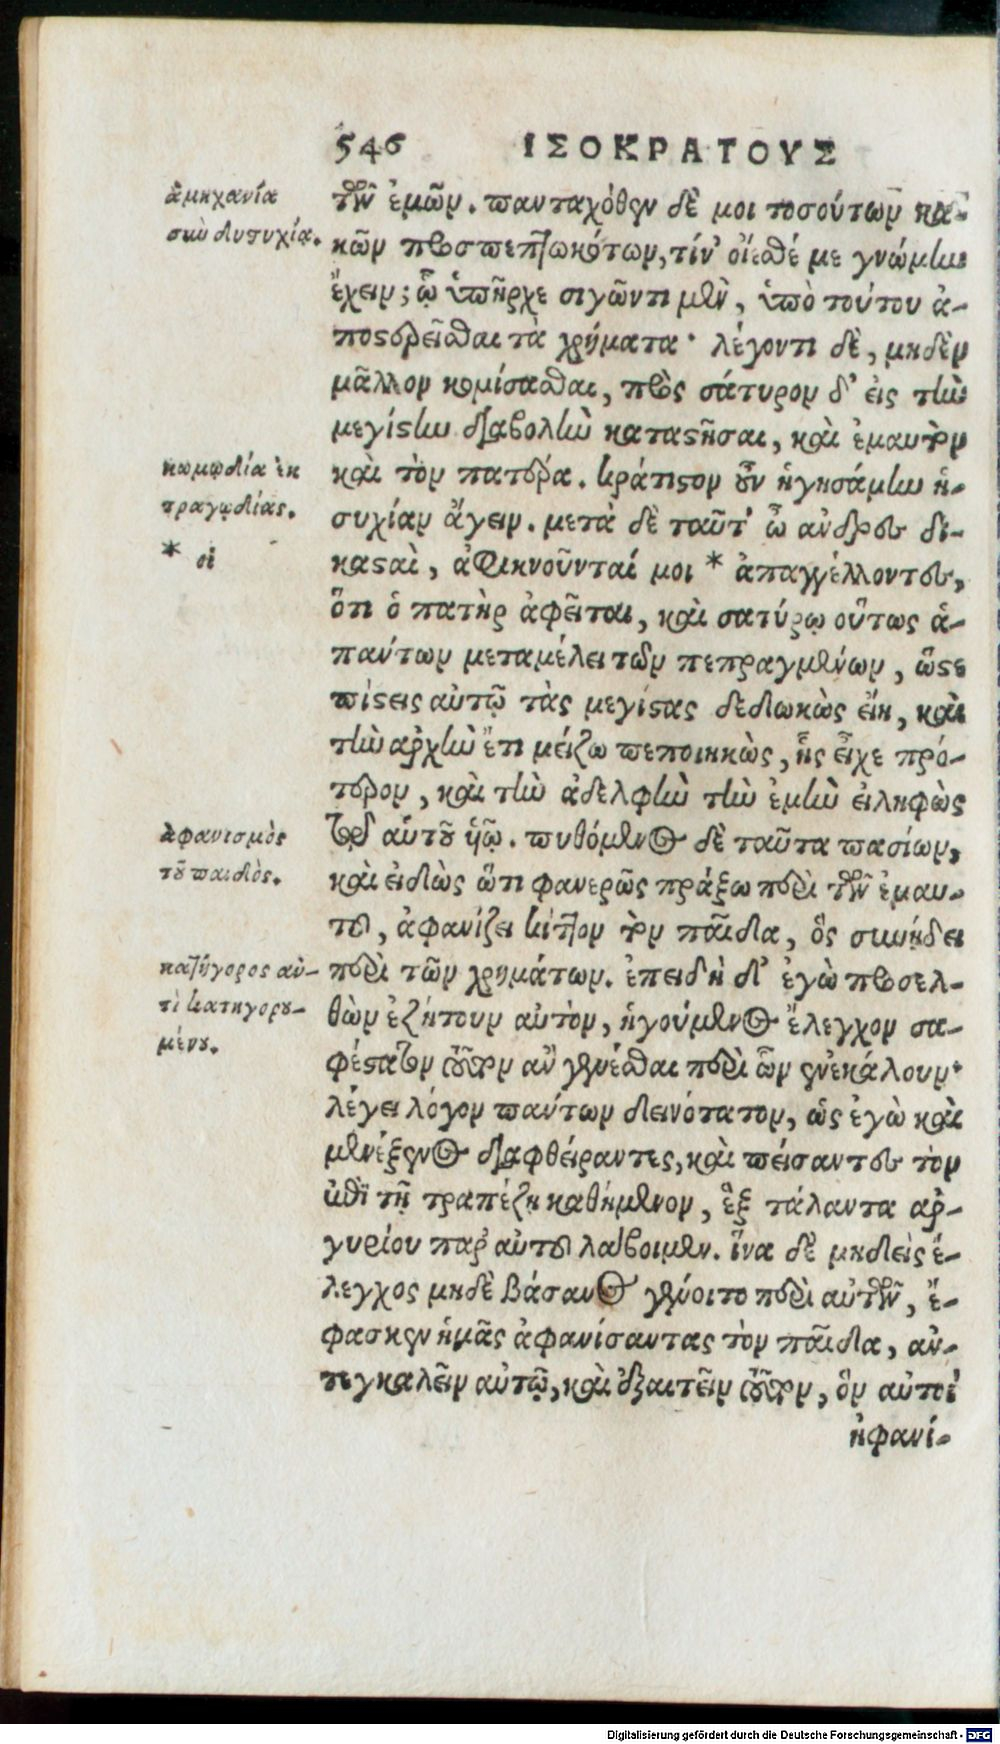 546 ΙΣΟΚΡΑΤΟΥΣ
ἀμηχανία
σὺν δυςυχίᾳ.
τῶν ἐμῶν. πανταχόθεν δέ μοι τοσούτων κα-
κῶν προσπεπτωκότων, τίν' οἴεσθέ με γνώμην
ἔχειν; ᾧ ὑπῆρχε σιγῶντι μὲν, ὑπὸ τούτου ἀ-
ποστερεῖσθαι τὰ χρήματα· λέγοντι δὲ, μηδὲν
μᾶλλον κομίσασθαι, πρὸς σάτυρον δ' εἰς τὴν
μεγίστην διαβολὴν καταστῆσαι, καὶ ἐμαυτὸν
κωμῳδία ἐκ
τραγῳδίας.
* οἱ
καὶ τὸν πατέρα. κράτιστον οὖν ἡγησάμην ἡ-
συχίαν ἄγειν. μετὰ δὲ ταῦτ' ὦ ἄνδρες δι-
κασαὶ, ἀφικνοῦνταί μοι * ἀπαγγέλλοντες,
ὅτι ὁ πατὴρ ἀφεῖται, καὶ σατύρῳ οὕτως ἁ-
πάντων μεταμέλει τῶν πεπραγμένων, ὥστε
πίστεις αὐτῷ τὰς μεγίστας δεδωκὼς εἴη, καὶ
τὴν ἀρχὴν ἔτι μείζω πεποιηκὼς, ἧς εἶχε πρό-
τερον, καὶ τὴν ἀδελφὴν τὴν ἐμὴν εἰληφὼς
ἀφανισμὸς
τοῦ παιδὸς.
τῷ αὑτοῦ ὑῷ. πυθόμενος δὲ ταῦτα πασίων,
καὶ εἰδὼς ὅτι φανερῶς πράξω περὶ τῶν ἐμαυ-
τοῦ, ἀφανίζει κίττον τὸν παῖδα, ὃς συνῄδει
κατήγορος ἀν-
τὶ κατηγορου-
μένου.
περὶ τῶν χρημάτων. ἐπειδὴ δ' ἐγὼ προσελ-
θὼν ἐζήτουν αὐτὸν, ἡγούμενος ἔλεγχον σα-
φέστατον τοῦτον ἂν γενέσθαι περὶ ὧν ἐνεκάλουν·
λέγει λόγον πάντων δεινότατον, ὡς ἐγὼ καὶ
μενέξενος διαφθείραντες, καὶ πείσαντες τὸν
ἐπὶ τῇ τραπέζῃ καθήμενον, ἓξ τάλαντα ἀρ-
γυρίου παρ' αὐτοῦ λάβοιμεν. ἵνα δὲ μηδεὶς ἔ-
λεγχος μηδὲ βάσανος γένοιτο περὶ αὐτῶν, ἔ-
φασκεν ἡμᾶς ἀφανίσαντας τὸν παῖδα, ἀν-
τεγκαλεῖν αὐτῷ, καὶ ἐξαιτεῖν τοῦτον, ὃν αὐτοὶ
ἠφανί-
Digitalisierung gefördert durch die Deutsche Forschungsgemeinschaft - DFG